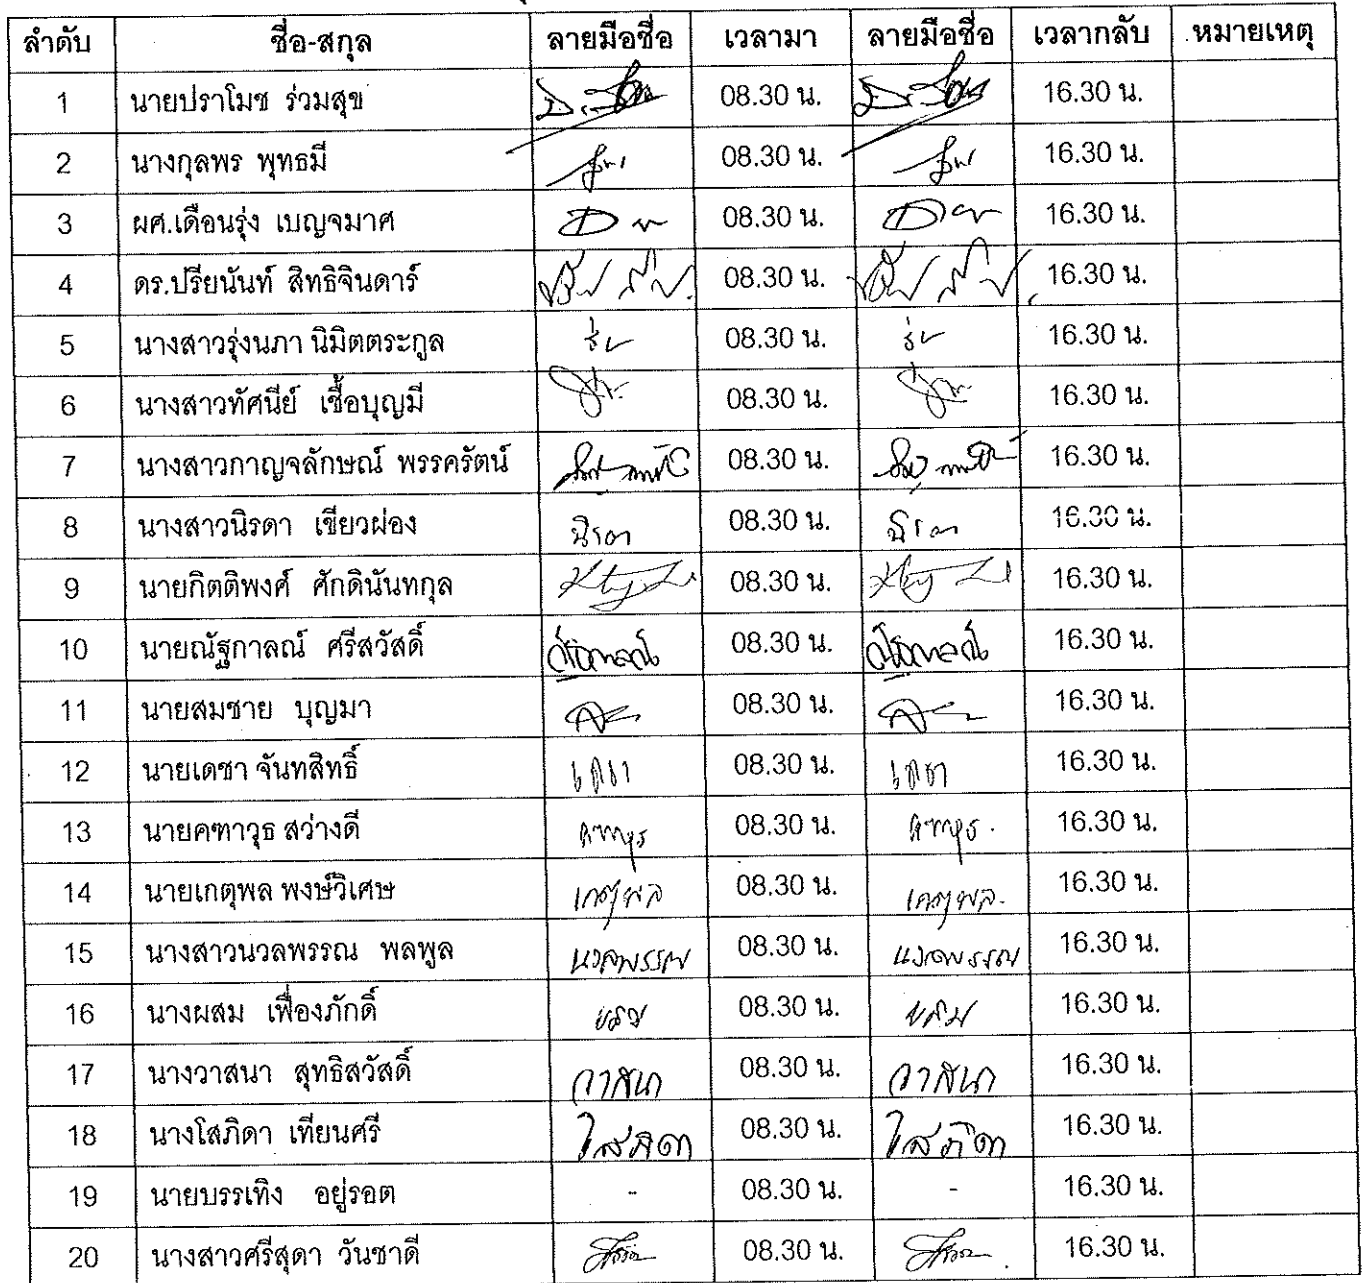 ลำดับ ชื่อ-สกุล ลายมือชื่อ เวลามา ลายมือชื่อ เวลากลับ หมายเหตุ
1 นายปราโมช ร่วมสุข 08.30 น. 16.30 น.
2 นางกุลพร พุทธมี 08.30 น. 16.30 น.
3 ผศ.เดือนรุ่ง เบญจมาศ 08.30 น. 16.30 น.
4 ดร.ปรียนันท์ สิทธิจินดาร์ 08.30 น. 16.30 น.
5 นางสาวรุ่งนภา นิมิตตระกูล 08.30 น. 16.30 น.
6 นางสาวทัศนีย์ เชื้อบุญมี 08.30 น. 16.30 น.
7 นางสาวกาญจลักษณ์ พรรครัตน์ 08.30 น. 16.30 น.
8 นางสาวนิรดา เขียวผ่อง นิรดา 08.30 น. นิรดา 16.30 น.
9 นายกิตติพงศ์ ศักดินันทกุล 08.30 น. 16.30 น.
10 นายณัฐกาลณ์ ศรีสวัสดิ์ 08.30 น. 16.30 น.
11 นายสมชาย บุญมา 08.30 น. 16.30 น.
12 นายเดชา จันทสิทธิ์ เดชา 08.30 น. เดชา 16.30 น.
13 นายคฑาวุธ สว่างดี 08.30 น. 16.30 น.
14 นายเกตุพล พงษ์วิเศษ เกตุพล 08.30 น. เกตุพล. 16.30 น.
15 นางสาวนวลพรรณ พลพูล นวลพรรณ 08.30 น. นวลพรรณ 16.30 น.
16 นางผสม เฟื่องภักดิ์ 08.30 น. 16.30 น.
17 นางวาสนา สุทธิสวัสดิ์ วาสนา 08.30 น. วาสนา 16.30 น.
18 นางโสภิดา เทียนศรี โสภิดา 08.30 น. โสภิดา 16.30 น.
19 นายบรรเทิง อยู่รอต - 08.30 น. - 16.30 น.
20 นางสาวศรีสุดา วันชาดี 08.30 น. 16.30 น.